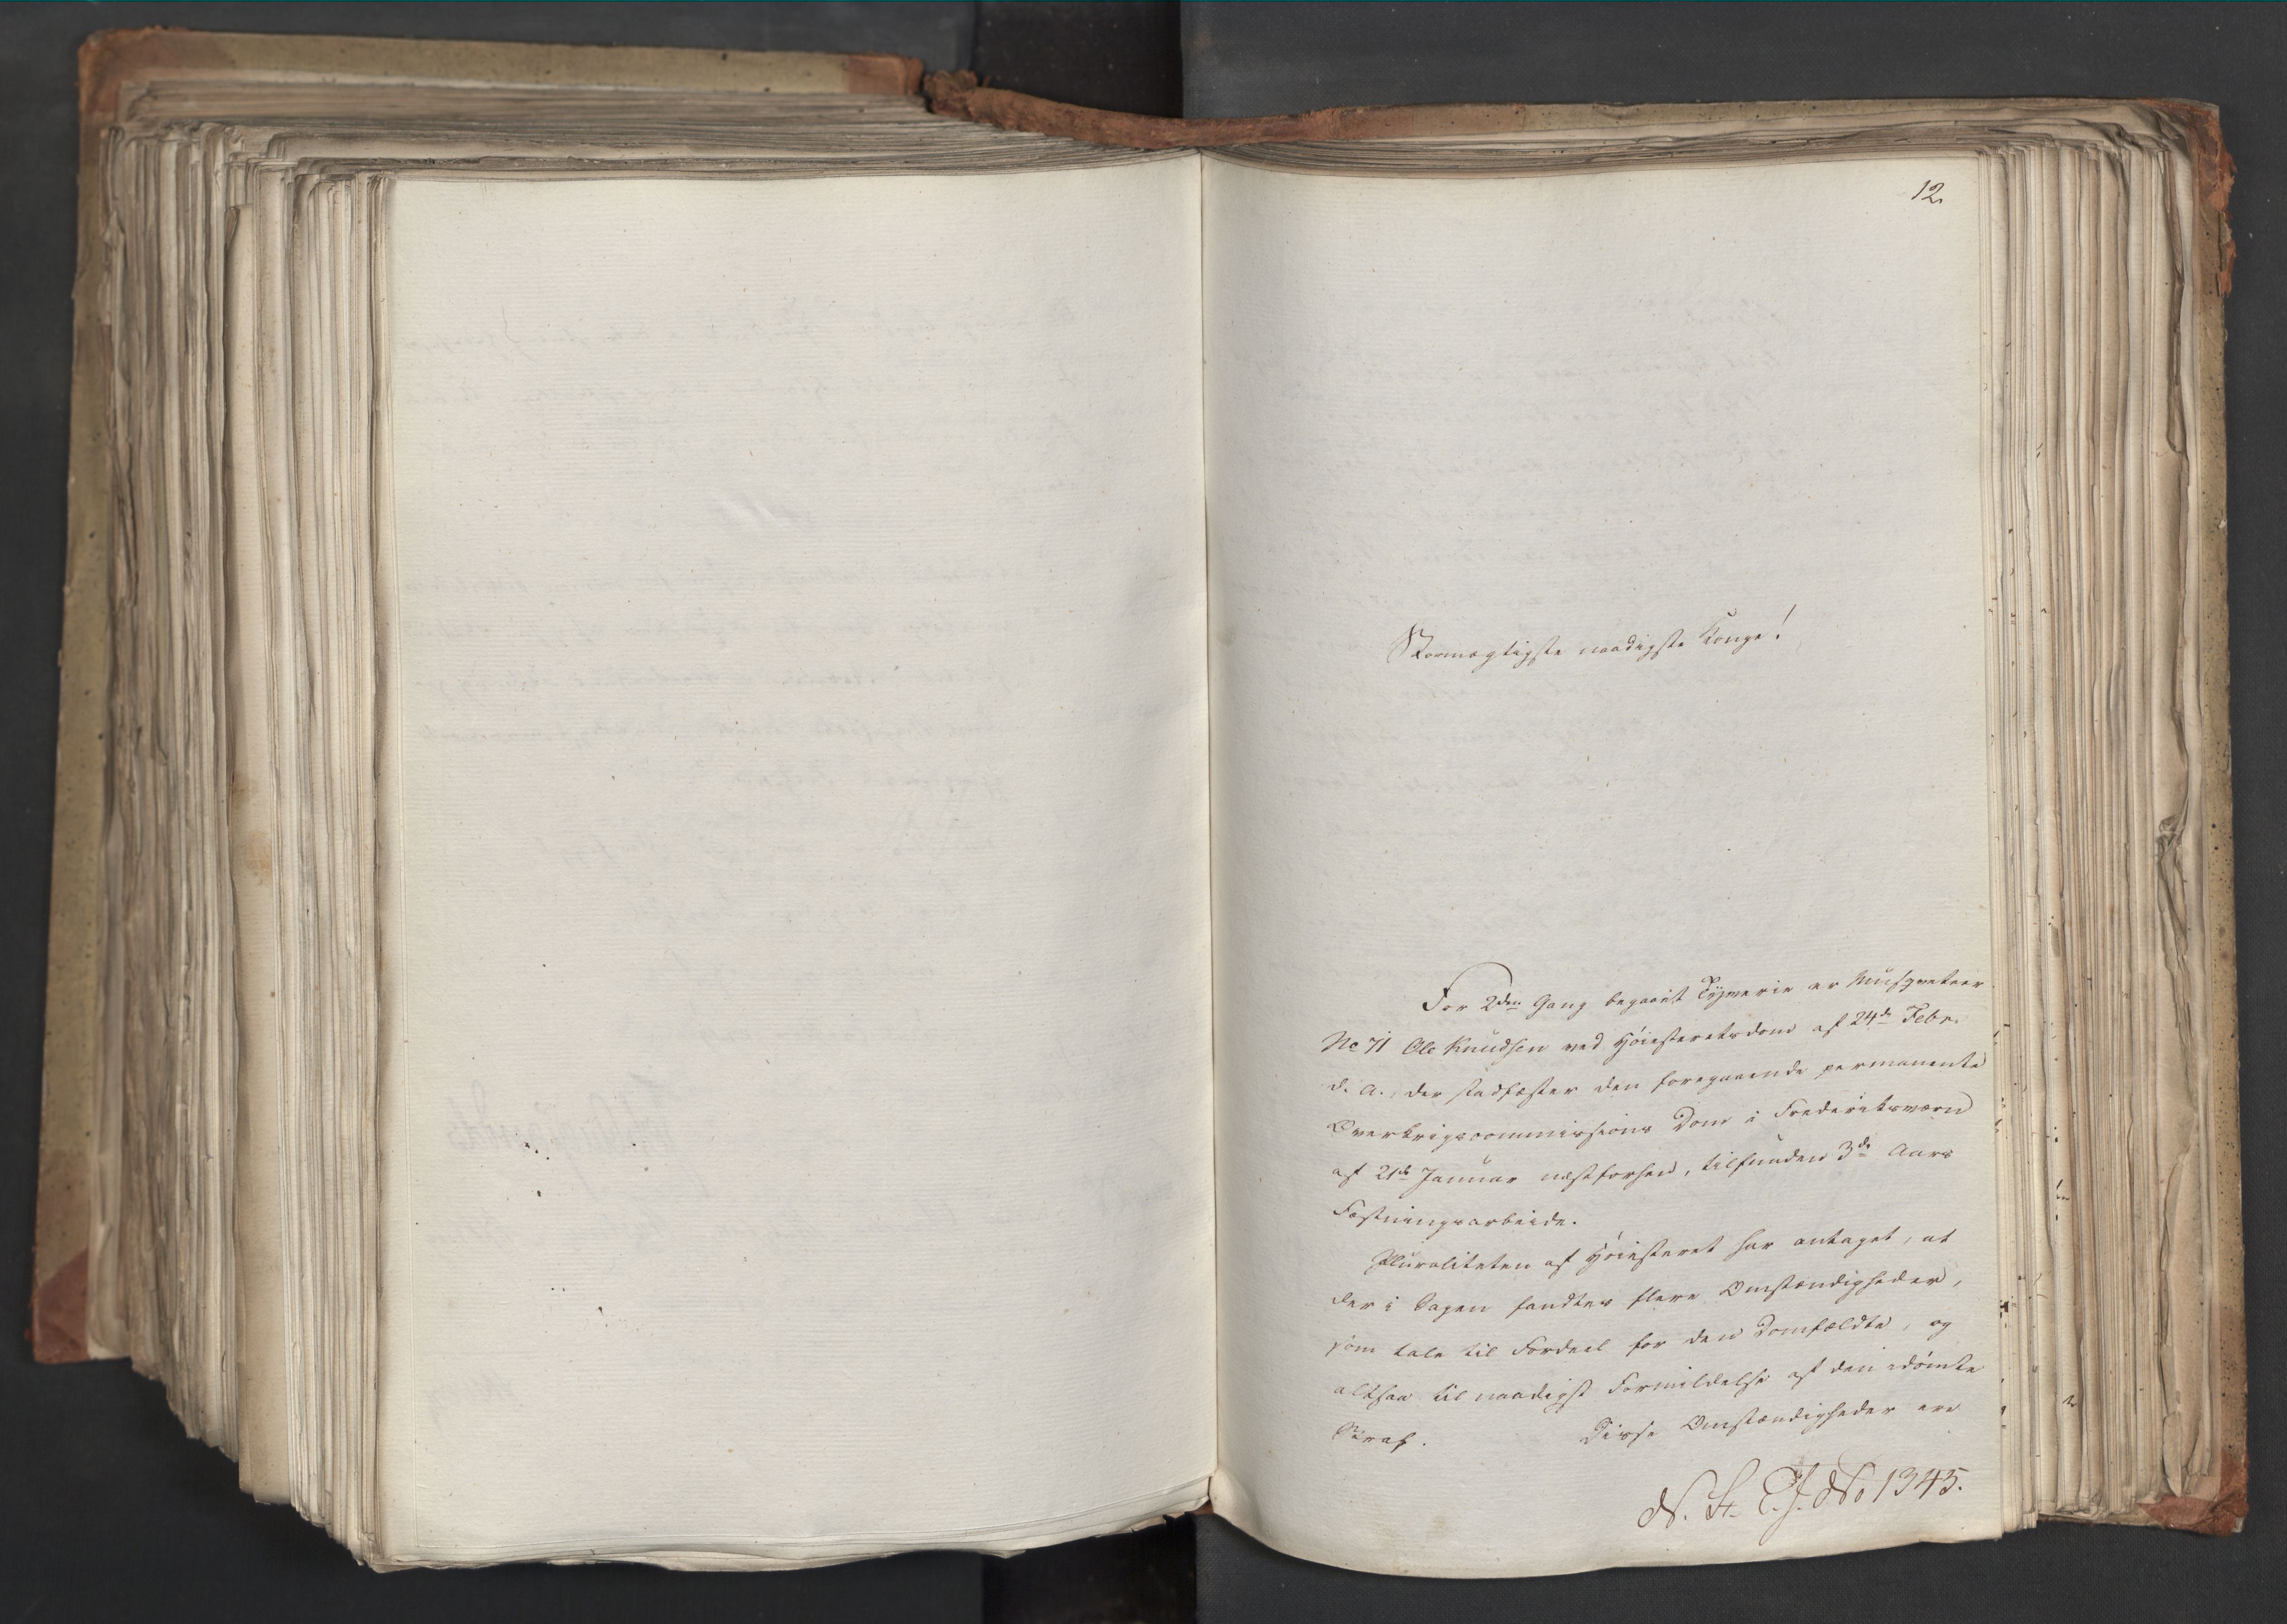 12
Stormægtigste naadigste Konge!
For 2den Gang begaaet Tyverie er Musqueteer
No 71 Ole Knudsen ved Høiesteretsdom af 24de Febr.
d. A., der stadfæster den foregaaende permanente
Overkrigscommissions Dom i Frederiksværn
af 21de Januar næstforhen, tilfunden 3de Aars
Fæstningsarbeide.
Pluraliteten af Høiesteret har antaget, at
der i Sagen fandtes flere Omstændigheder,
som tale til Fordeel for den Domfældte, og
altsaa til naadigst Formildelse af den idømte
Straf. Disse Omstændigheder ere
N. St. C. J. No 1345.